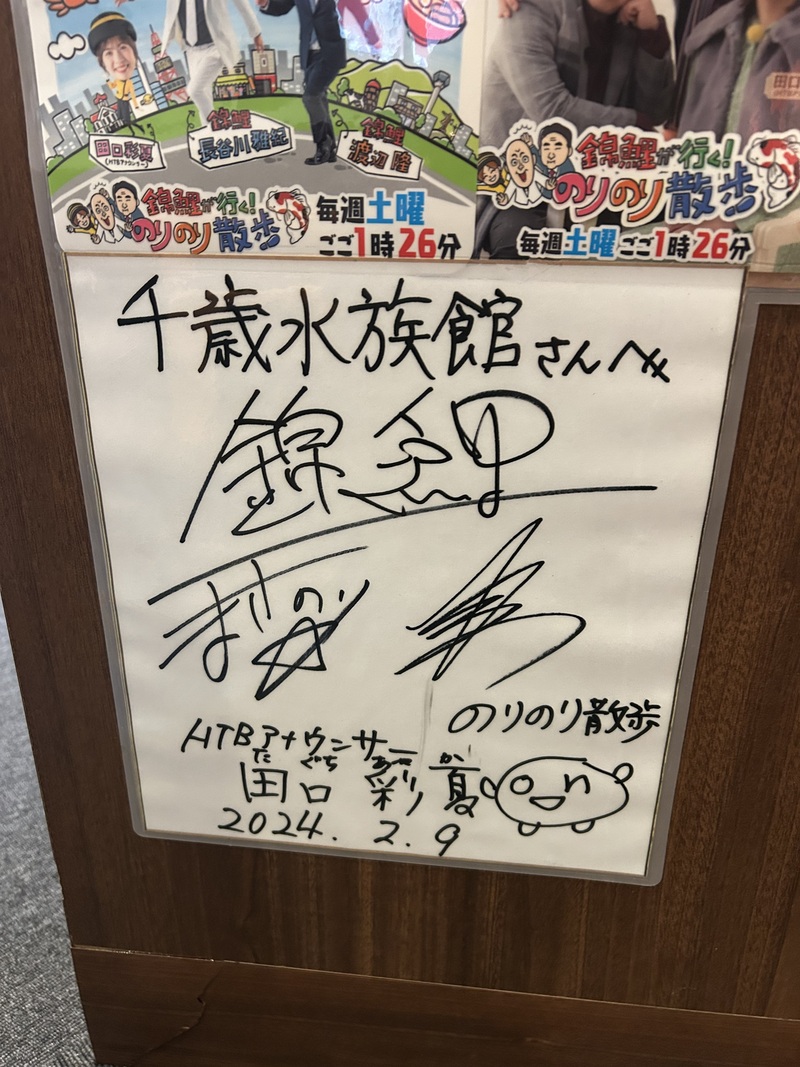 田口彩夏
(HTBアナウンサー)
錦鯉
長谷川雅紀
錦鯉
渡辺隆
錦鯉が行く!
のりのり散歩
毎週土曜
ごご1時26分
田口
錦鯉が行く!
のりのり散歩
毎週土曜ごご1時26分
千歳水族館さんへ
錦鯉
まさのり
のりのり散歩
HTBアナウンサー
たぐち あやか
田口 彩夏
2024.2.9